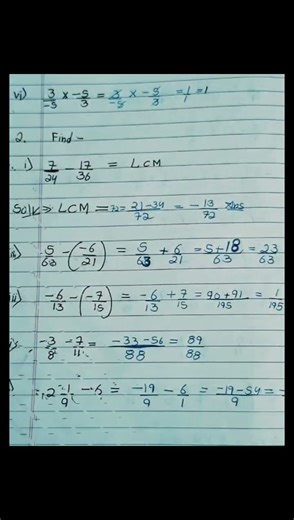 vi) 3/-5 x -5/3 = 3/-5 x -5/3 = 1/1 = 1
2. Find -
i) 7/24 - 17/36 = LCM
Sol> LCM = 72 = 21-34/72 = -13/72 Ans
ii) 5/63 - (-6/21) = 5/63 + 6/21 = 5+18/63 = 23/63
iii) -6/13 - (-7/15) = -6/13 + 7/15 = 90+91/195 = 1/195
-3/8 - 7/11 = -33-56/88 = 89/88
-2 1/9 - 6 = -19/9 - 6/1 = -19-54/9 = -